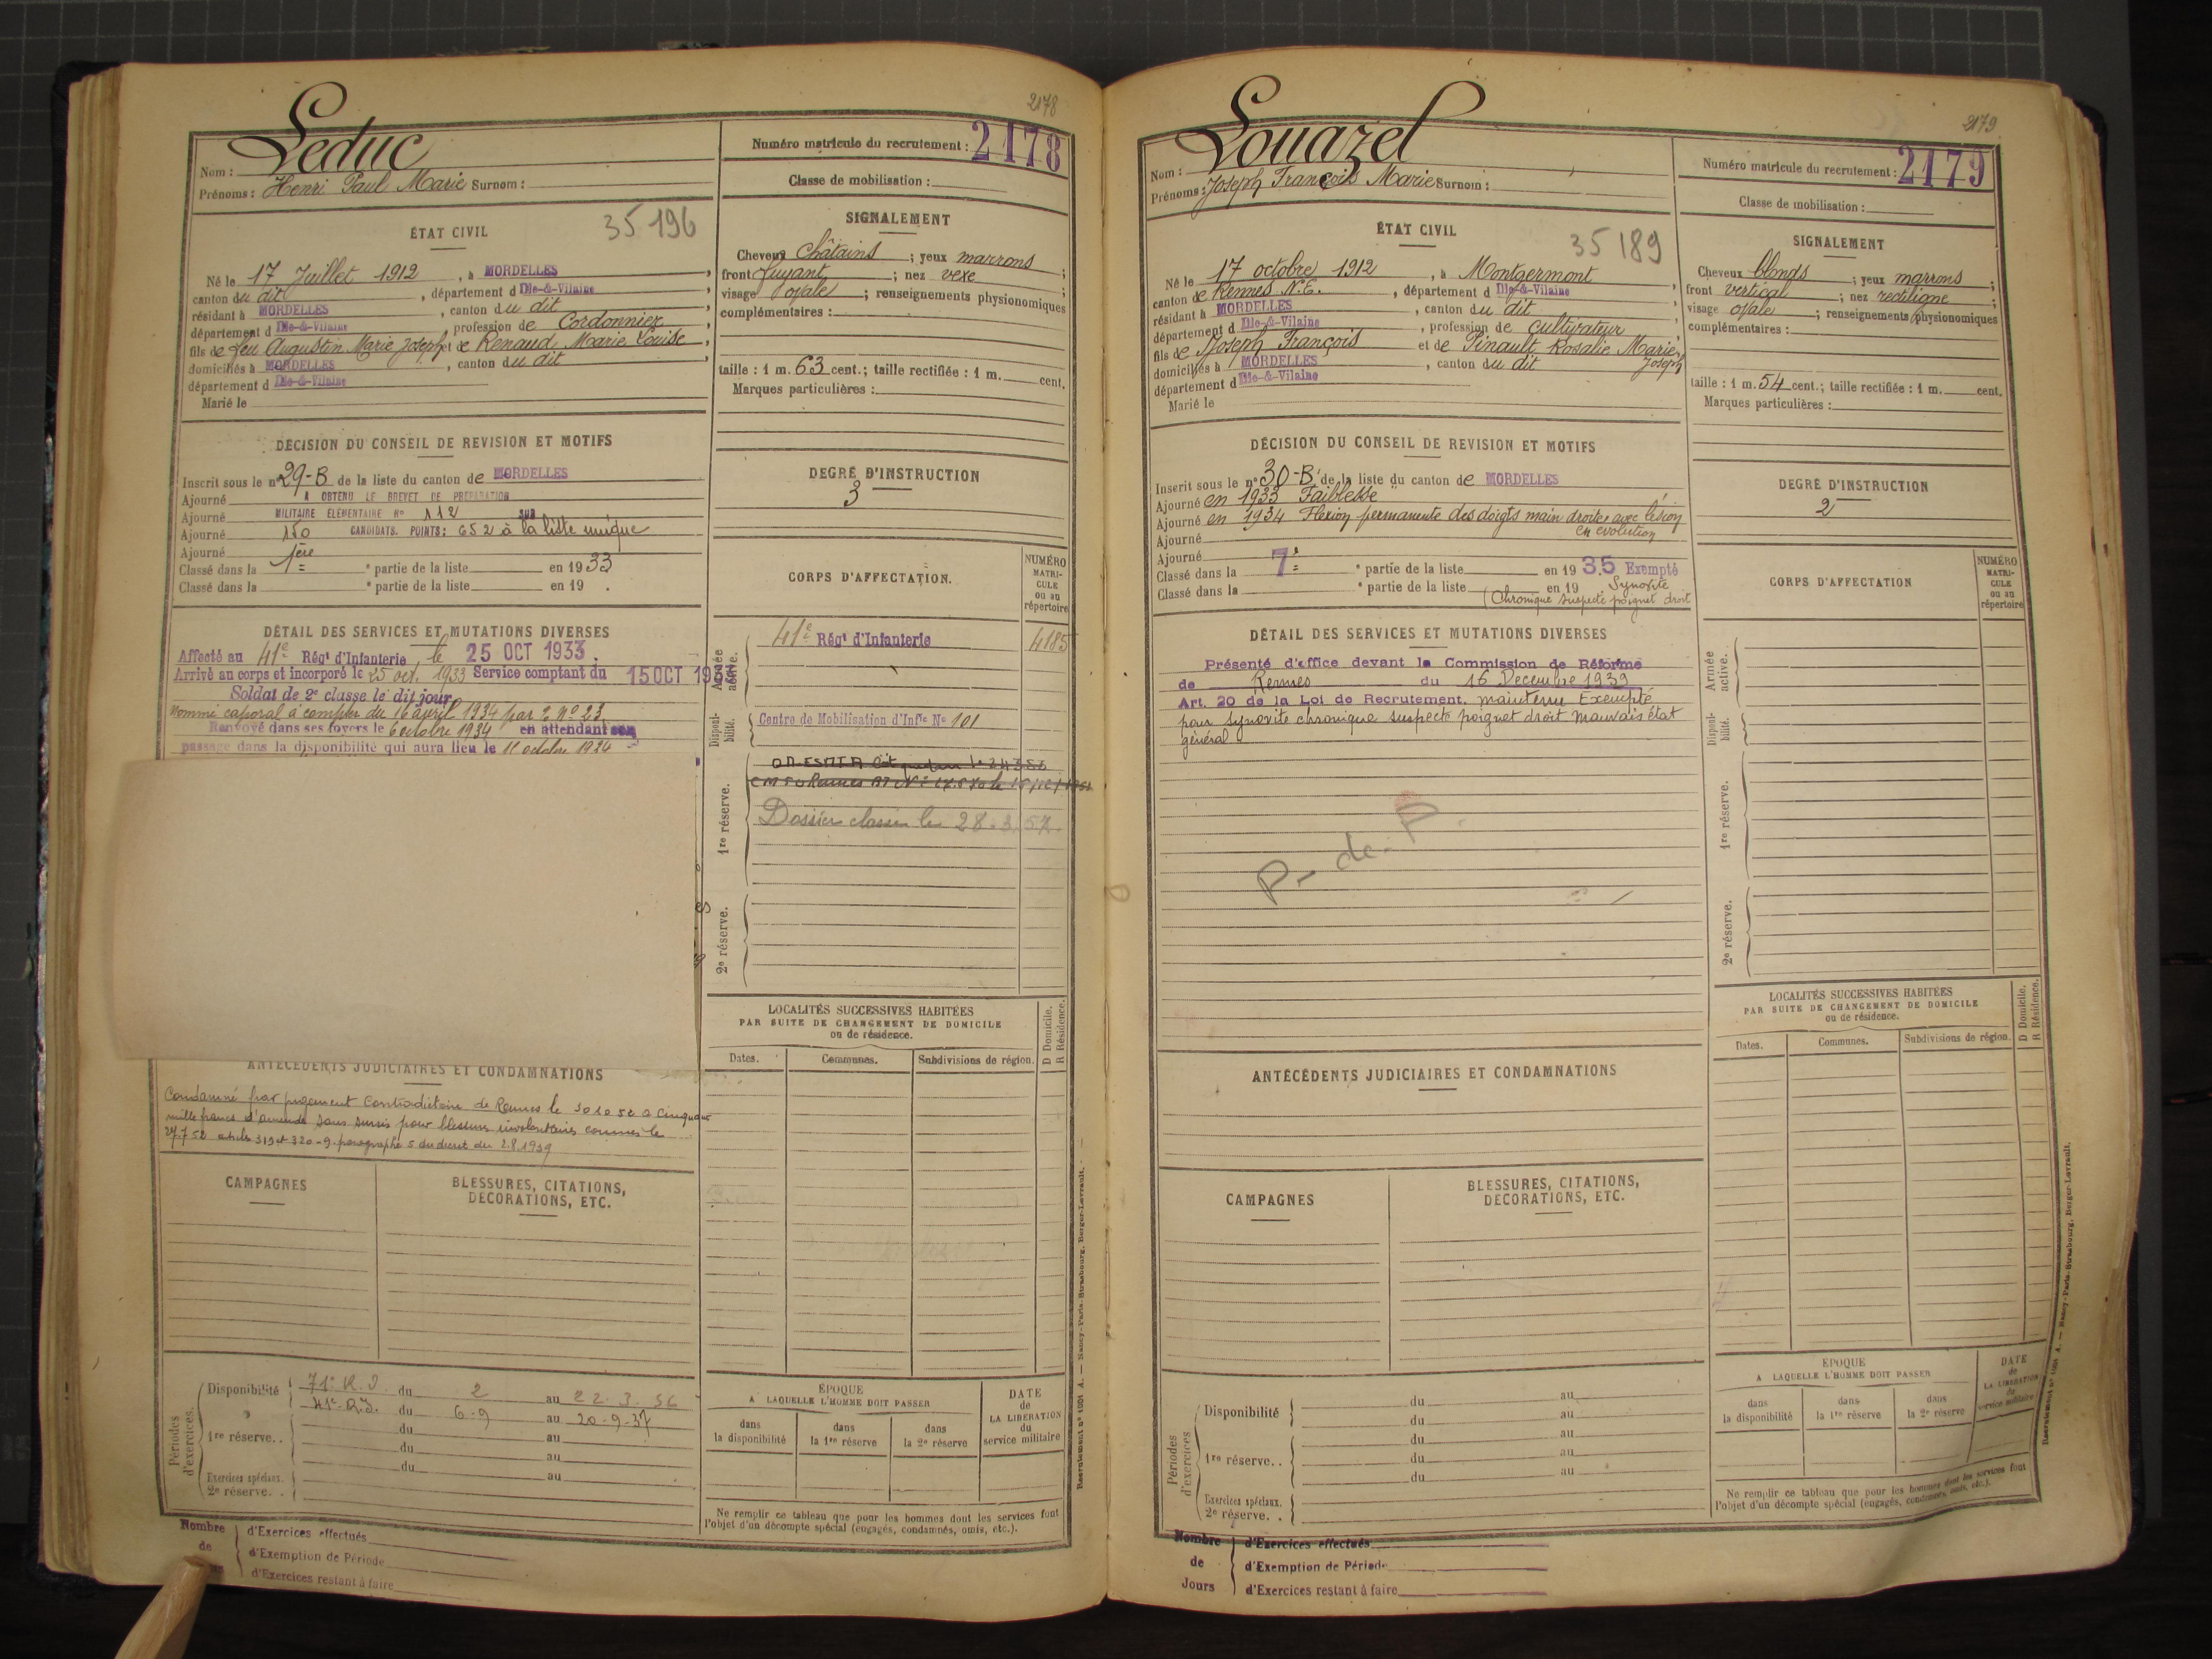 2178
Leduc
Nom :
Prénoms : Henri Paul Marie Surnom :
Numéro matricule du recrutement : 2178
Classe de mobilisation :
35 196
ÉTAT CIVIL
Né le 17 Juillet 1912, à MORDELLES,
canton du dit, département d Ille-&-Vilaine
résidant à MORDELLES, canton du dit
département d Ille-&-Vilaine, profession de Cordonnier,
fils de feu Augustin Marie Joseph et de Renaud Marie Louise,
domiciliés à MORDELLES, canton du dit
département d Ille-&-Vilaine
Marié le
SIGNALEMENT
Cheveux châtains ; yeux marrons ;
front fuyant ; nez vexe ;
visage ovale ; renseignements physionomiques
complémentaires :
taille : 1 m. 63 cent.; taille rectifiée : 1 m. cent.
Marques particulières :
DÉCISION DU CONSEIL DE REVISION ET MOTIFS
Inscrit sous le n° 29-B de la liste du canton de MORDELLES
Ajourné A OBTENU LE BREVET DE PRÉPARATION
Ajourné MILITAIRE ÉLÉMENTAIRE N° 112 SUR
Ajourné 150 CANDIDATS. POINTS: 652 à la liste unique
Ajourné
Classé dans la 1ère e partie de la liste en 1933
Classé dans la e partie de la liste en 19 .
DEGRÉ D'INSTRUCTION
3
DÉTAIL DES SERVICES ET MUTATIONS DIVERSES
Affecté au 41e Régt d'Infanterie, le 25 OCT 1933.
Arrivé au corps et incorporé le 25 oct. 1933 Service comptant du 15 OCT 1933
Soldat de 2e classe le dit jour
Nommé caporal à compter du 16 avril 1934 par n° 23
Renvoyé dans ses foyers le 6 octobre 1934 en attendant son
passage dans la disponibilité qui aura lieu le octobre 1934
CORPS D'AFFECTATION.
NUMÉRO MATRICULE ou au répertoire
Armée active.
41e Régt d'Infanterie 4185
Disponibilité.
Centre de Mobilisation d'Inflе N° 101
1re réserve.
Dossier classé le 28.3.57.
2e réserve.
LOCALITÉS SUCCESSIVES HABITÉES
PAR SUITE DE CHANGEMENT DE DOMICILE
ou de résidence.
D Domicile.
R Résidence.
Dates. Communes. Subdivisions de région.
ANTÉCÉDENTS JUDICIAIRES ET CONDAMNATIONS
Condamné par jugement contradictoire de Rennes le 30 10 52 à cinquante
mille francs d'amende sans sursis pour blessures involontaires commis le
27.7.52 articles 319 et 320 - 9. paragraphe 5 du décret du 2.8.1939
CAMPAGNES
BLESSURES, CITATIONS,
DÉCORATIONS, ETC.
Périodes d'exercices.
Disponibilité 71e R.I. du 2 au 22.3.36
41e R.I. du 6-9 au 20-9-37
1re réserve. . du au
du au
du au
Exercices spéciaux.
2e réserve. .
ÉPOQUE
A LAQUELLE L'HOMME DOIT PASSER
dans la disponibilité
dans la 1re réserve
dans la 2e réserve
DATE de LA LIBÉRATION du service militaire
Ne remplir ce tableau que pour les hommes dont les services font
l'objet d'un décompte spécial (engagés, condamnés, omis, etc.).
Nombre de
d'Exercices effectués
d'Exemption de Période
d'Exercices restant à faire
Recrutement n° 1001 A. — Nancy-Paris-Strasbourg, Berger-Levrault.
2179
Louazel
Nom :
Prénoms : Joseph François Marie Surnom :
Numéro matricule du recrutement : 2179
Classe de mobilisation :
35 189
ÉTAT CIVIL
Né le 17 octobre 1912, à Montgermont
canton de Rennes N.E., département d Ille-&-Vilaine,
résidant à MORDELLES, canton du dit
département d Ille-&-Vilaine, profession de cultivateur
fils de Joseph François et de Pinault Rosalie Marie
Joseph
domiciliés à MORDELLES, canton du dit
département d Ille-&-Vilaine
Marié le
SIGNALEMENT
Cheveux blonds ; yeux marrons ;
front vertical ; nez rectiligne ;
visage ovale ; renseignements physionomiques
complémentaires :
taille : 1 m. 54 cent.; taille rectifiée : 1 m. cent.
Marques particulières :
DÉCISION DU CONSEIL DE REVISION ET MOTIFS
Inscrit sous le n° 30-B de la liste du canton de MORDELLES
Ajourné en 1933 "Faiblesse"
Ajourné en 1934 Flexion permanente des doigts main droite avec lésion
en évolution
Ajourné
Ajourné
Classé dans la 7e e partie de la liste en 1935 Exempté
Classé dans la e partie de la liste en 19 Synovite
(Chronique suspecte poignet droit
DEGRÉ D'INSTRUCTION
2
DÉTAIL DES SERVICES ET MUTATIONS DIVERSES
Présenté d'office devant la Commission de Réforme
de Rennes du 16 Décembre 1939
Art. 20 de la Loi de Recrutement. maintenu Exempté
pour synovite chronique suspecte poignet droit mauvais état
général
P- de- P.
CORPS D'AFFECTATION
NUMÉRO MATRICULE ou au répertoire
Armée active.
Disponibilité.
1re réserve.
2e réserve.
LOCALITÉS SUCCESSIVES HABITÉES
PAR SUITE DE CHANGEMENT DE DOMICILE
ou de résidence.
D Domicile.
R Résidence.
Dates. Communes. Subdivisions de région.
ANTÉCÉDENTS JUDICIAIRES ET CONDAMNATIONS
CAMPAGNES
BLESSURES, CITATIONS,
DÉCORATIONS, ETC.
Périodes d'exercices
Disponibilité du au
du au
1re réserve. . du au
du au
du au
Exercices spéciaux.
2e réserve. .
ÉPOQUE
A LAQUELLE L'HOMME DOIT PASSER
dans la disponibilité
dans la 1re réserve
dans la 2e réserve
DATE de LA LIBÉRATION du service militaire
Ne remplir ce tableau que pour les hommes dont les services font
l'objet d'un décompte spécial (engagés, condamnés, omis, etc.).
Nombre de Jours
d'Exercices effectués
d'Exemption de Période
d'Exercices restant à faire
Recrutement n° 1001 A. — Nancy-Paris-Strasbourg, Berger-Levrault.